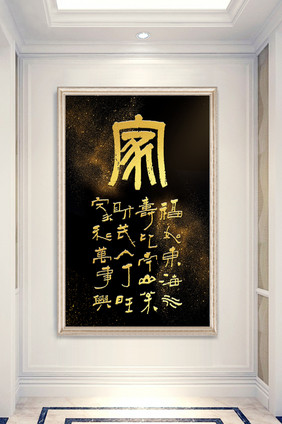 家
福如東海
壽比南山
財茂人丁旺
家和萬事興